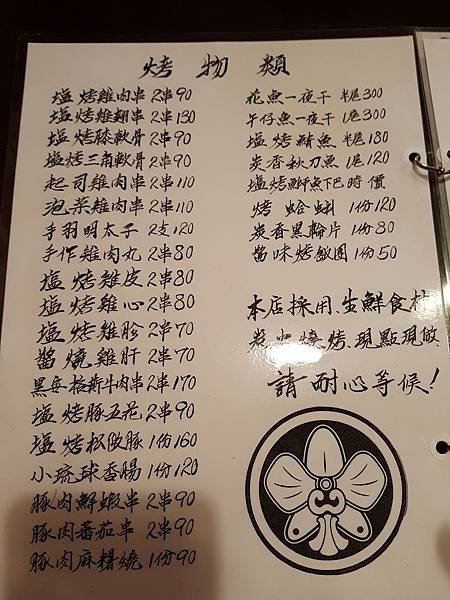 烤物類
塩烤雞肉串 2串90
塩烤雞翅串 2串130
塩烤膝軟骨 2串90
塩烤三角軟骨 2串90
起司雞肉串 2串110
泡菜雞肉串 2串110
手羽明太子 2支120
手作雞肉丸 2串80
塩烤雞皮 2串80
塩烤雞心 2串80
塩烤雞胗 2串70
醬燒雞肝 2串70
黑安格斯牛肉串 2串170
塩烤豚五花 2串90
塩烤松阪豚 1份160
小琉球香腸 1份120
豚肉鮮蝦串 2串90
豚肉蕃茄串 2串90
豚肉麻糬燒 1份90
花魚一夜干 半尾300
午仔魚一夜干 1尾300
塩烤鯖魚 半尾180
炭香秋刀魚 1尾120
塩烤鰤魚下巴 時價
烤蛤蜊 1份120
炭香黑輪片 1份80
醬味烤飯糰 1份50
本店採用.生鮮食材
炭火燒烤.現點現做
請耐心等候!